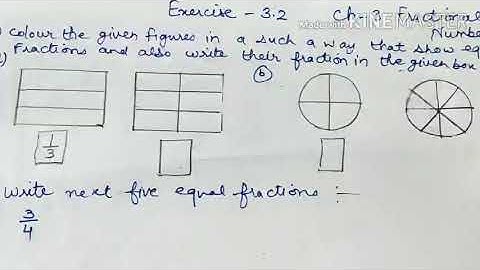 Exercise - 3.2 Ch-3 Fractional
Made with KINEMASTER
Number
) Colour the given figures in a such a way that show eq
) Fractions and also write their fraction in the given box
b
1
3
Write next five equal fractions :-
3
4